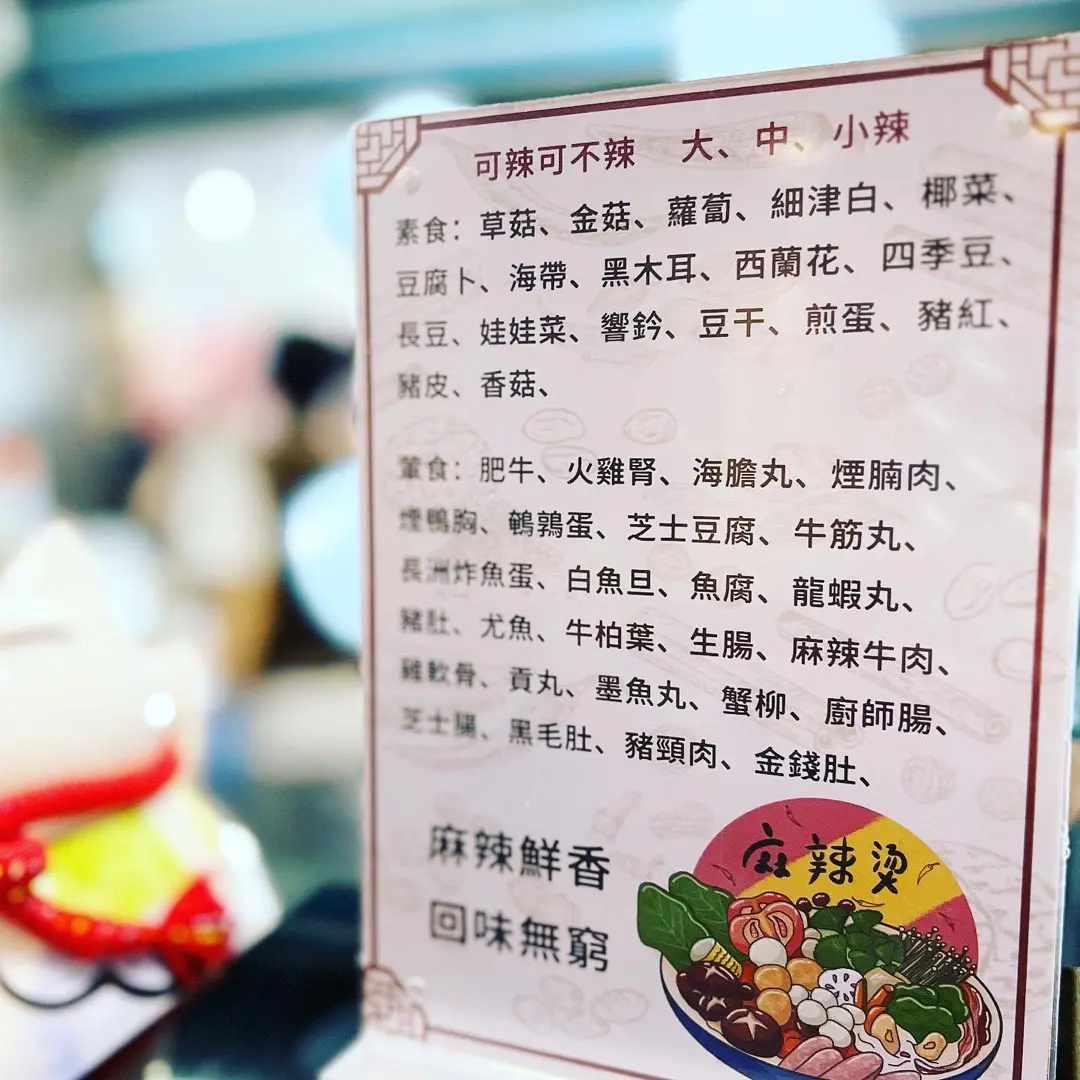 可辣可不辣 大、中、小辣
素食：草菇、金菇、蘿蔔、細津白、椰菜、
豆腐卜、海帶、黑木耳、西蘭花、四季豆、
長豆、娃娃菜、響鈴、豆干、煎蛋、豬紅、
豬皮、香菇、
葷食：肥牛、火雞腎、海膽丸、煙腩肉、
煙鴨胸、鵪鶉蛋、芝士豆腐、牛筋丸、
長洲炸魚蛋、白魚旦、魚腐、龍蝦丸、
豬肚、尤魚、牛柏葉、生腸、麻辣牛肉、
雞軟骨、貢丸、墨魚丸、蟹柳、廚師腸、
芝士腸、黑毛肚、豬頸肉、金錢肚、
麻辣鮮香
回味無窮
麻辣燙